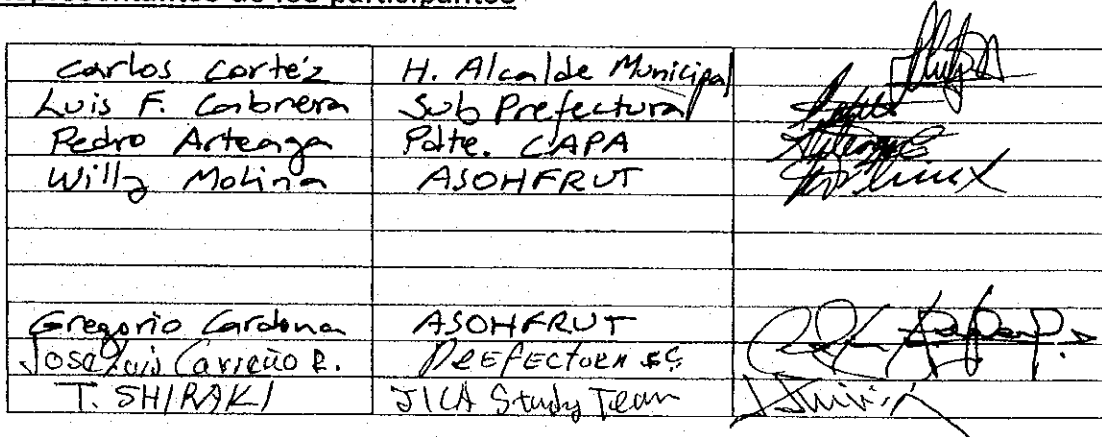 Representantes de los participantes
Carlos Cortéz H. Alcalde Municipal
Luis F. Cabrera Sub Prefectura
Pedro Arteaga Pdte. CAPA
Willy Molina ASOHFRUT
Gregorio Cardona ASOHFRUT
Jose Luis Carreño R. PREFECTURA SC
T. SHIRAKI JICA Study Team